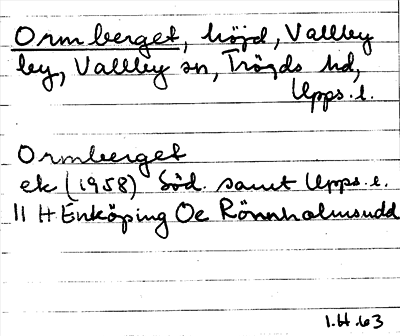 Ormberget, höjd, Vallby
by, Vallby sn, Trögds hd,
Upps. l.
Ormberget
ek (1958) Söd. samt Upps. l.
11 H Enköping Oe Rönnholmsudd
1.H.63